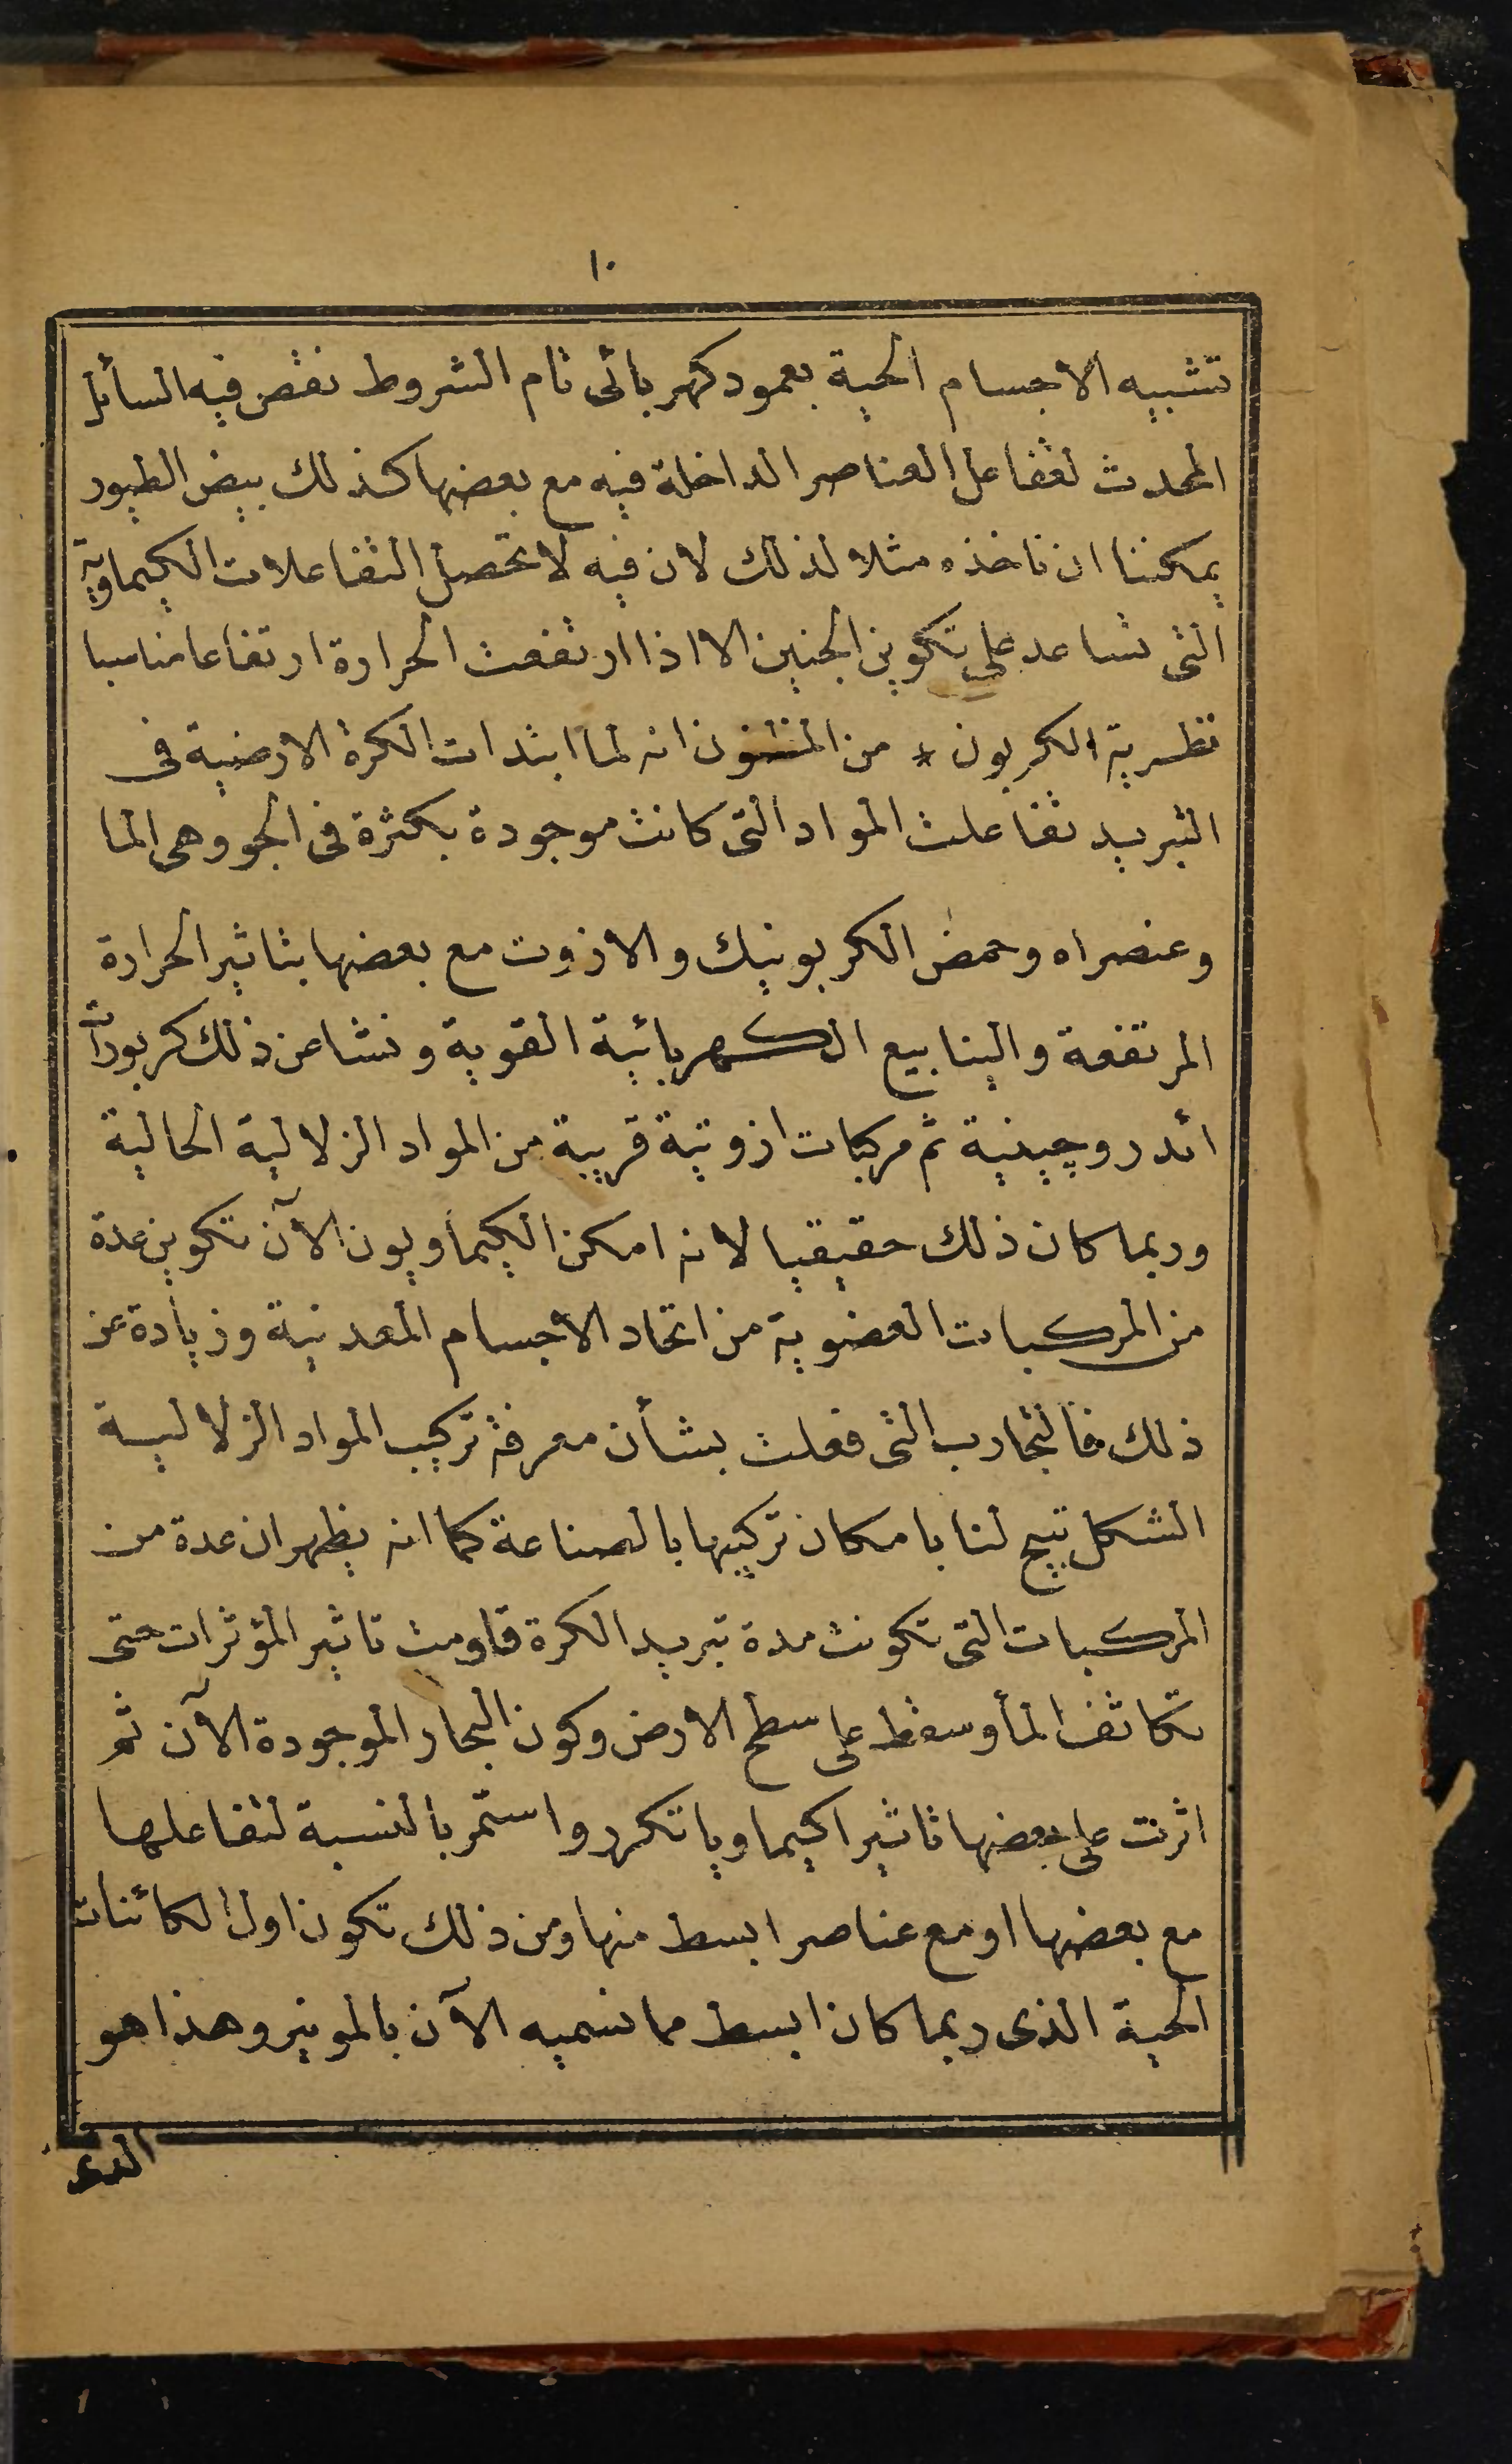 ١٠
تشبيه الاجسام الحية بعمود كهربائى تام الشروط نقص فيه السائل
المحدث لتفاعل العناصر الداخلة فيه مع بعضها كذلك بيض الطيور
يمكننا ان ناخذه مثلا لذلك لان فيه لا تحصل التفاعلات الكيماوية
التى تساعد على تكوين الجنين الا اذا ارتفعت الحرارة ارتفاعا مناسبا
نظرية الكربون * من المظنون انه لما ابتدات الكرة الارضية فى
التبريد تفاعلت المواد التى كانت موجودة بكثرة فى الجو وهى الما
وعنصراه وحمض الكربونيك والازوت مع بعضها بتاثير الحرارة
المرتفعة والينابيع الكهربائية القوية ونشا عن ذلك كربورات
ائدروچينية ثم مركبات ازوتية قريبة من المواد الزلالية الحالية
وربما كان ذلك حقيقيا لانه امكن الكيماويون الآن تكوين عدة
من المركبات العضوية من اتحاد الاجسام المعدنية وزيادة عن
ذلك فالتجارب التى فعلت بشأن معرفة تركيب المواد الزلالية
الشكل تبيح لنا بامكان تركيبها بالصناعة كما انه يظهر ان عدة من
المركبات التى تكونت مدة تبريد الكرة قاومت تاثير المؤثرات حتى
تكاثف المأ وسقط على سطح الارض وكون البحار الموجودة الآن ثم
اثرت على بعضها تاثيرا كيماويا تكرر واستمر بالنسبة لتفاعلها
مع بعضها او مع عناصر ابسط منها ومن ذلك تكون اول الكائنات
الحية الذى ربما كان ابسط مما نسميه الآن بالمونير وهذا هو